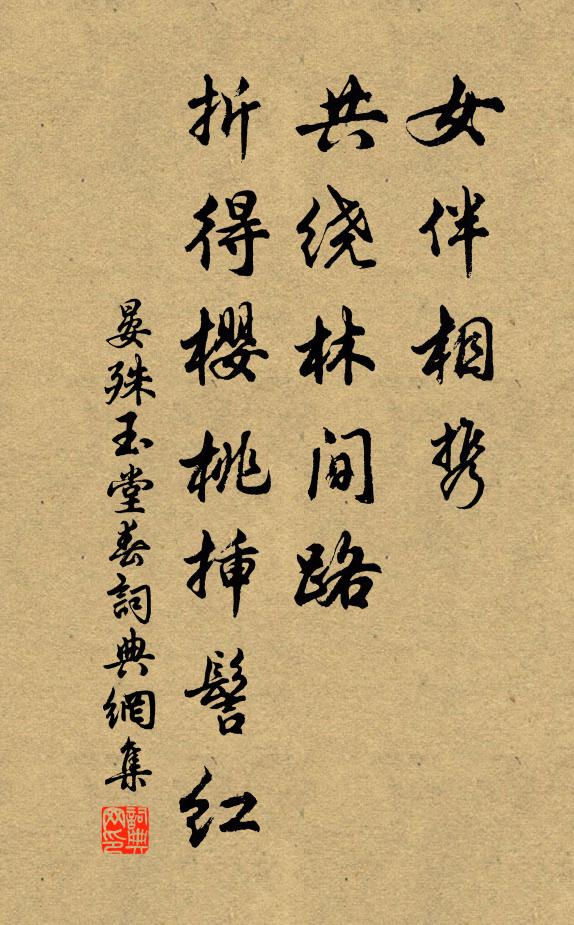 女伴相携
共绕林间路
折得樱桃插髻红
晏殊玉堂春詞典網集
詞典网印